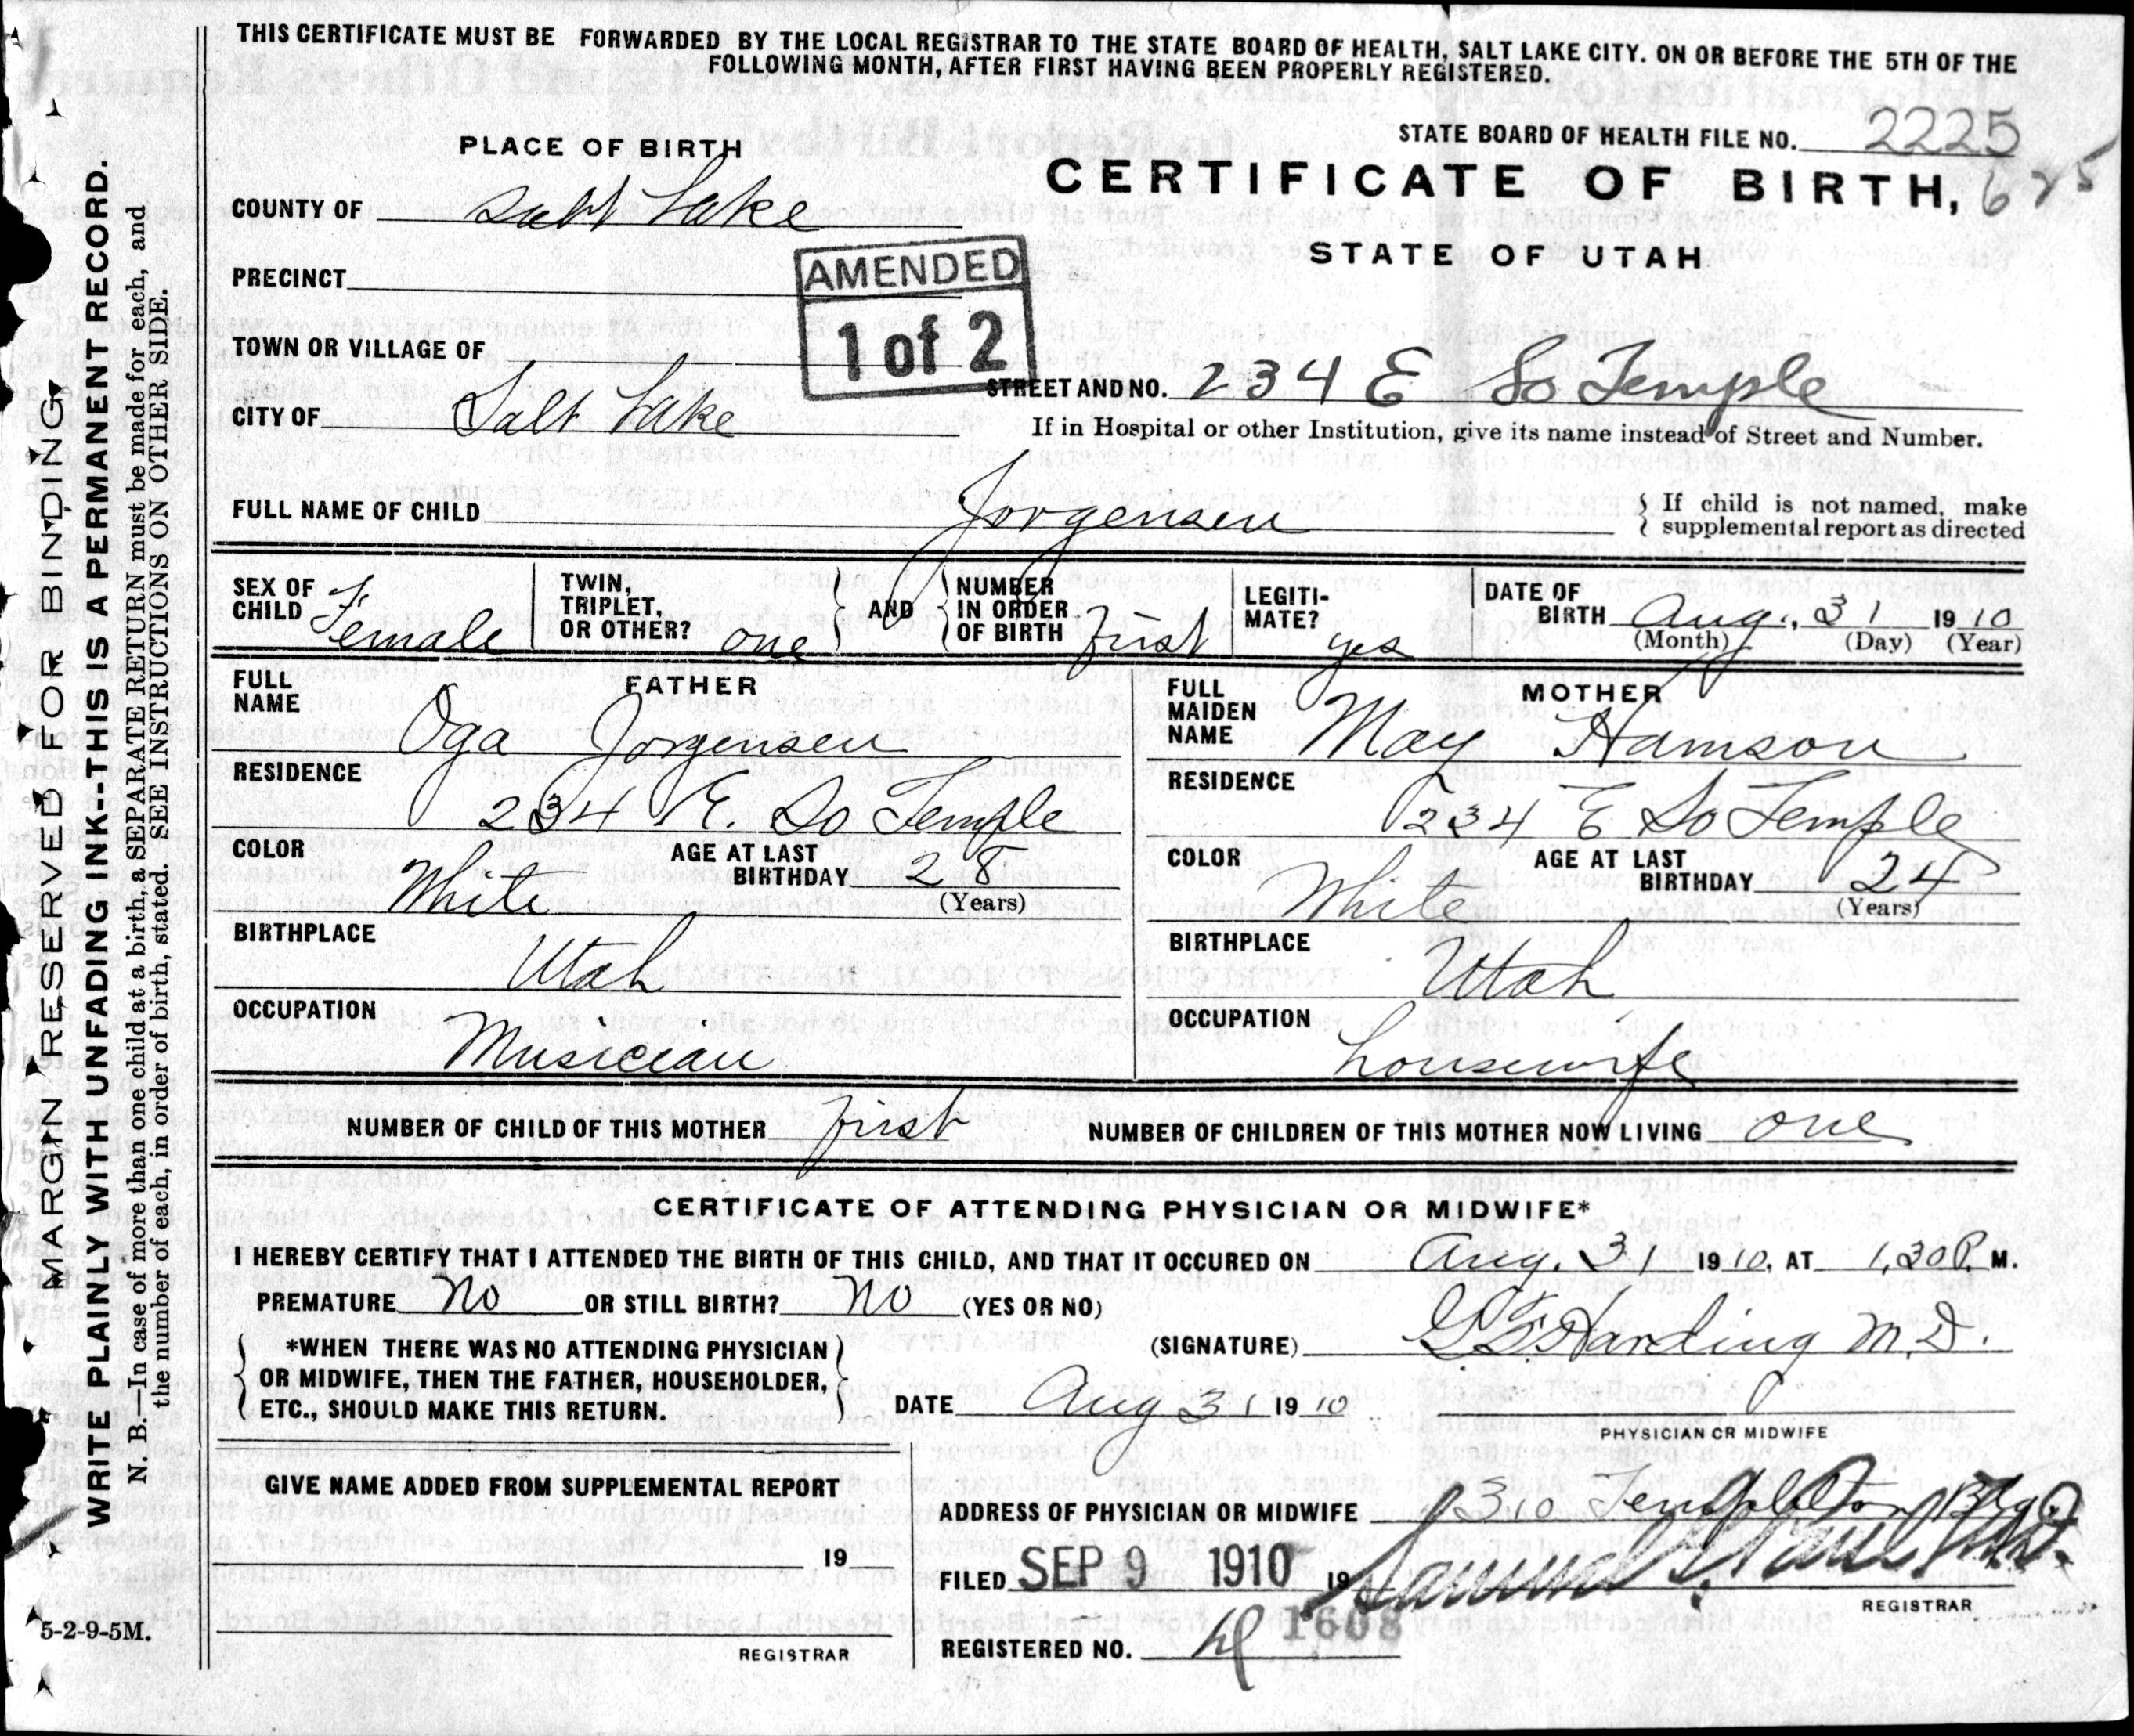 THIS CERTIFICATE MUST BE FORWARDED BY THE LOCAL REGISTRAR TO THE STATE BOARD OF HEALTH, SALT LAKE CITY. ON OR BEFORE THE 5TH OF THE
FOLLOWING MONTH, AFTER FIRST HAVING BEEN PROPERLY REGISTERED.
STATE BOARD OF HEALTH FILE NO. 2225
PLACE OF BIRTH
CERTIFICATE OF BIRTH, 625
COUNTY OF Salt Lake
STATE OF UTAH
PRECINCT
AMENDED
1 of 2
TOWN OR VILLAGE OF
STREET AND NO. 234 E So Temple
CITY OF Salt Lake
If in Hospital or other Institution, give its name instead of Street and Number.
FULL NAME OF CHILD Jorgensen
If child is not named, make
supplemental report as directed
SEX OF CHILD Female
TWIN, TRIPLET, OR OTHER? one
AND
NUMBER IN ORDER OF BIRTH first
LEGITI-MATE? yes
DATE OF BIRTH Aug., 31 1910
(Month) (Day) (Year)
FATHER
FULL NAME Oga Jorgensen
RESIDENCE
234 E. So Temple
COLOR White
AGE AT LAST BIRTHDAY 28
(Years)
BIRTHPLACE
Utah
OCCUPATION
Musician
MOTHER
FULL MAIDEN NAME May Hamson
RESIDENCE
234 E So Temple
COLOR White
AGE AT LAST BIRTHDAY 24
(Years)
BIRTHPLACE
Utah
OCCUPATION
housewife
NUMBER OF CHILD OF THIS MOTHER first
NUMBER OF CHILDREN OF THIS MOTHER NOW LIVING one
CERTIFICATE OF ATTENDING PHYSICIAN OR MIDWIFE*
I HEREBY CERTIFY THAT I ATTENDED THE BIRTH OF THIS CHILD, AND THAT IT OCCURED ON Aug. 31 1910, AT 1,30 P. M.
PREMATURE No OR STILL BIRTH? No (YES OR NO)
*WHEN THERE WAS NO ATTENDING PHYSICIAN
OR MIDWIFE, THEN THE FATHER, HOUSEHOLDER,
ETC., SHOULD MAKE THIS RETURN.
(SIGNATURE) Harding M.D.
DATE Aug 31 1910
PHYSICIAN OR MIDWIFE
GIVE NAME ADDED FROM SUPPLEMENTAL REPORT
19
REGISTRAR
ADDRESS OF PHYSICIAN OR MIDWIFE 310 Templeton Bldg
FILED SEP 9 1910 19 Samuel G. Paul M.D.
REGISTRAR
REGISTERED NO. 1608
MARGIN RESERVED FOR BINDING
WRITE PLAINLY WITH UNFADING INK--THIS IS A PERMANENT RECORD.
N. B.—In case of more than one child at a birth, a SEPARATE RETURN must be made for each, and
the number of each, in order of birth, stated. SEE INSTRUCTIONS ON OTHER SIDE.
5-2-9-5M.